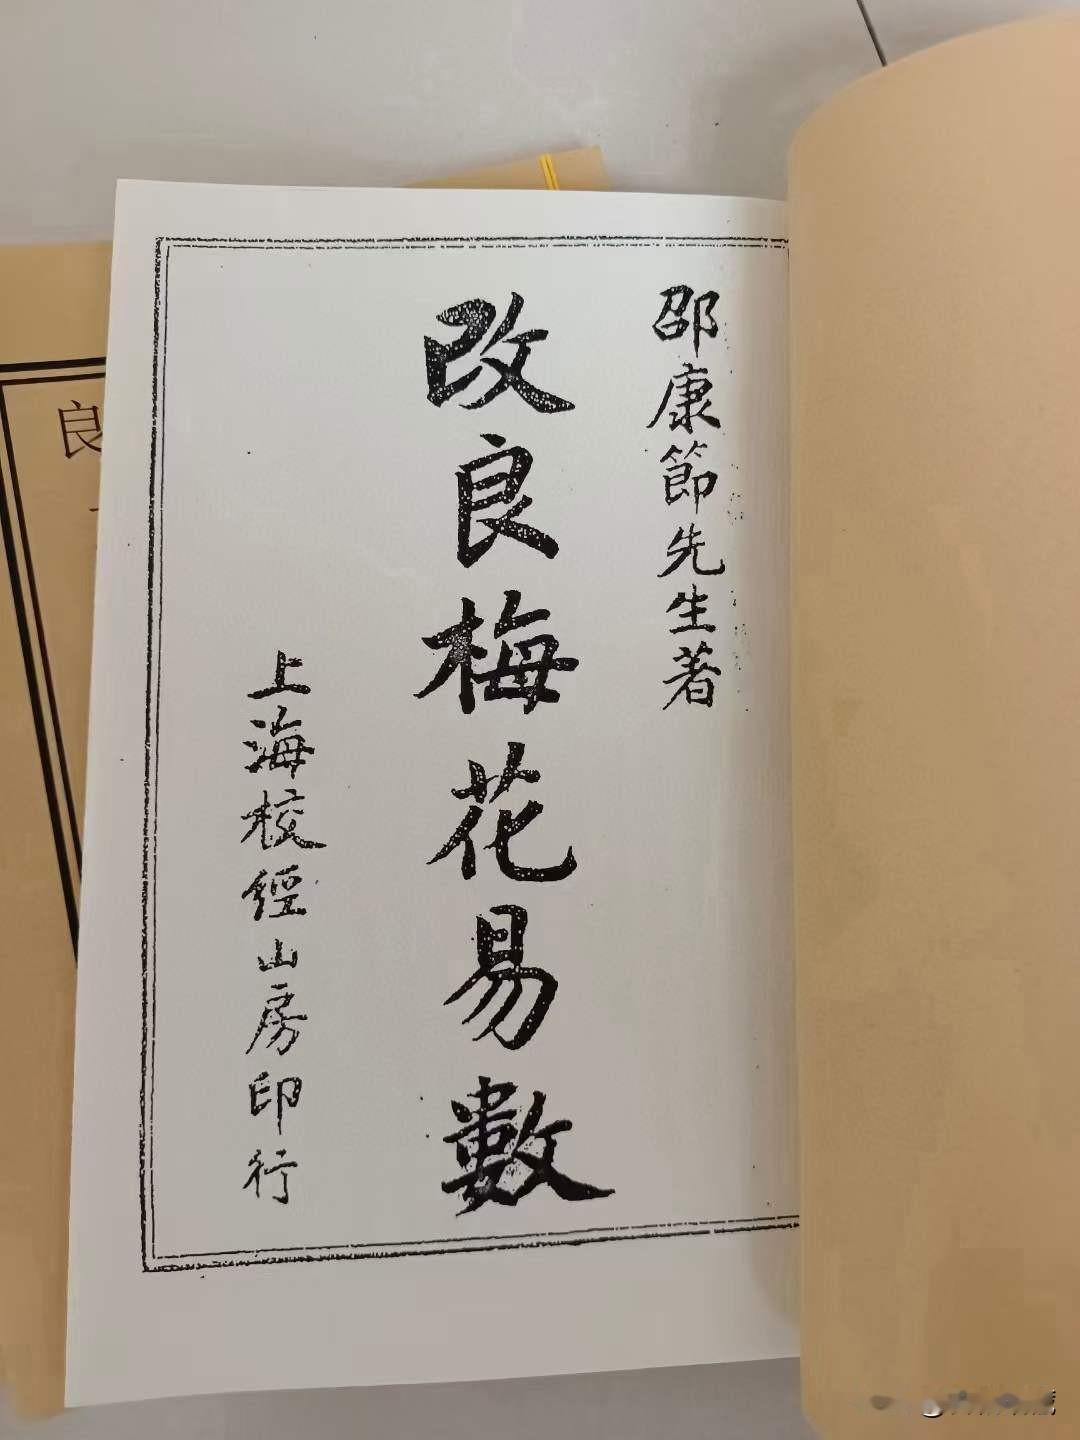 邵康節先生著
改良梅花易數
上海校經山房印行
良